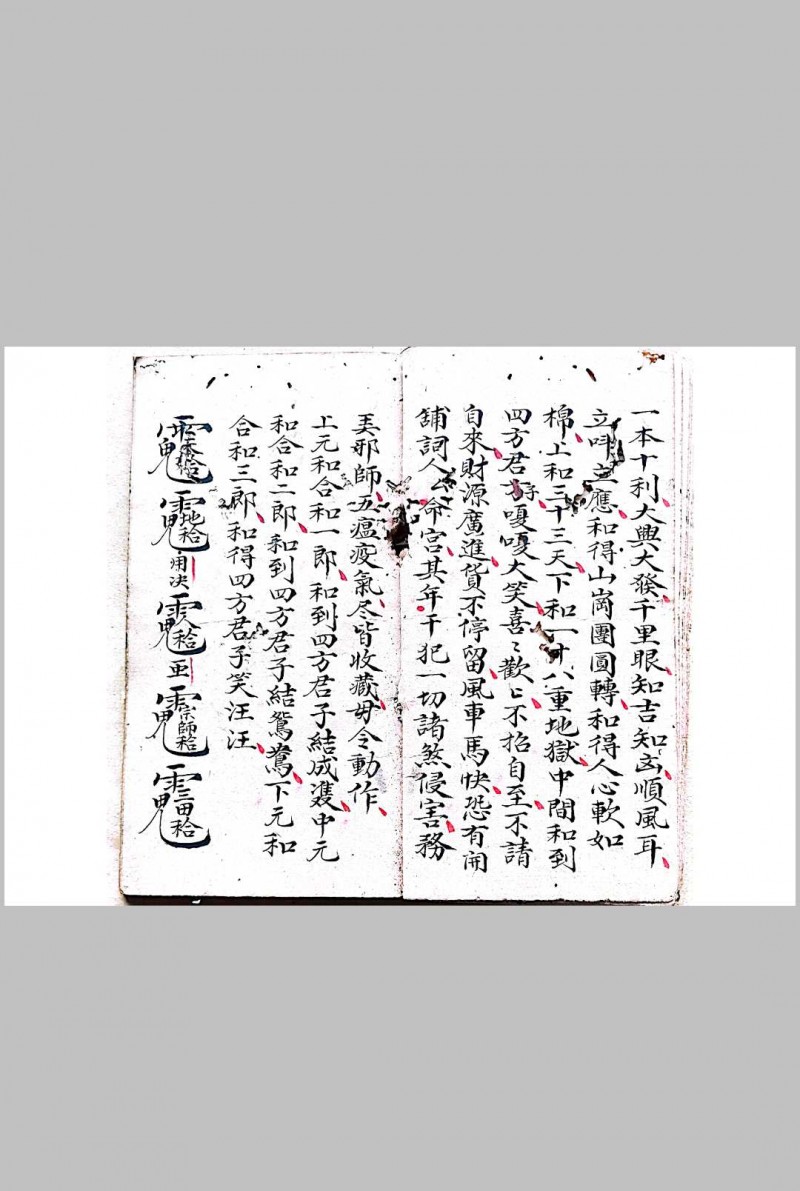 一本十利大興大發千里眼知吉知玄順風耳
立吽立應和得山崗團圓轉和得人心軟如
棉上和三十三天下和一十八重地獄中間和到
四方君子嗄嗄大笑喜〻歡〻不招自至不請
自來財源廣進貨不停留風車馬快恐有開
舖詞人△命宮其年干犯一切諸煞侵害務
邪師五瘟疫氣尽皆收藏毋令動作
上元和合和一郎和到四方君子結成雙中元
和合和二郎和到四方君子結鴛鴦下元和
合和三郎和得四方君子笑汪汪
用决